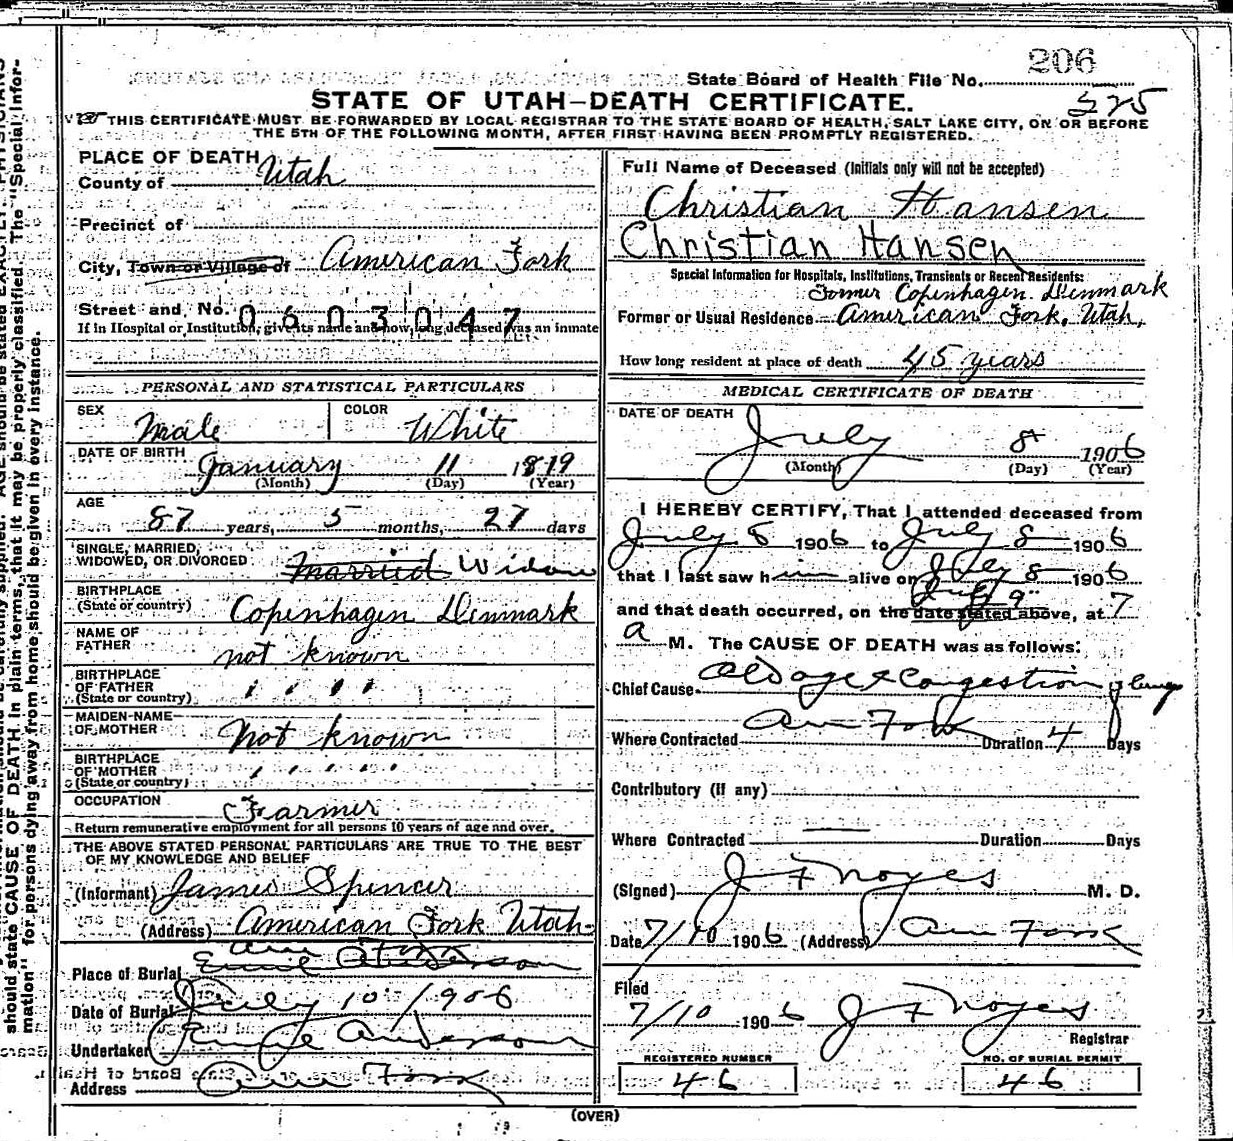 206
State Board of Health File No.
STATE OF UTAH—DEATH CERTIFICATE.
525
THIS CERTIFICATE MUST BE FORWARDED BY LOCAL REGISTRAR TO THE STATE BOARD OF HEALTH, SALT LAKE CITY, ON OR BEFORE
THE 5TH OF THE FOLLOWING MONTH, AFTER FIRST HAVING BEEN PROMPTLY REGISTERED.
PLACE OF DEATH
County of Utah
Precinct of
City, Town or Village of American Fork
Street and No. 0603047
If in Hospital or Institution, give its name and how long deceased was an inmate
PERSONAL AND STATISTICAL PARTICULARS
SEX Male COLOR White
DATE OF BIRTH January 11 1819
(Month) (Day) (Year)
AGE
87 years, 5 months, 27 days
SINGLE, MARRIED,
WIDOWED, OR DIVORCED Married Widow
BIRTHPLACE
(State or country) Copenhagen Denmark
NAME OF
FATHER not known
BIRTHPLACE
OF FATHER
(State or country) " " " "
MAIDEN-NAME
OF MOTHER Not known
BIRTHPLACE
OF MOTHER
(State or country) " " " " "
OCCUPATION Farmer
Return remunerative employment for all persons 10 years of age and over.
THE ABOVE STATED PERSONAL PARTICULARS ARE TRUE TO THE BEST
OF MY KNOWLEDGE AND BELIEF
(Informant) James Spencer
(Address) American Fork Utah
Am Fork
Place of Burial Emil Anderson
Date of Burial July 10 1906
Undertaker Emil Anderson
Address Am Fork
Full Name of Deceased (Initials only will not be accepted)
Christian Hansen
Christian Hansen
Special Information for Hospitals, Institutions, Transients or Recent Residents:
Former Copenhagen Denmark
Former or Usual Residence American Fork, Utah,
How long resident at place of death 45 years
MEDICAL CERTIFICATE OF DEATH
DATE OF DEATH
July 8 1906
(Month) (Day) (Year)
I HEREBY CERTIFY, That I attended deceased from
July 8 1906 to July 8 1906
that I last saw him alive on July 8 1906
July 9"
and that death occurred, on the date stated above, at 7
a M. The CAUSE OF DEATH was as follows:
Chief Cause Old age & Congestion of lungs
Where Contracted Am Fork Duration 4 Days
Contributory (if any)
Where Contracted Duration Days
(Signed) J F Noyes M. D.
Date 7/10 1906 (Address) Am Fork
Filed
7/10 1906 J F Noyes
Registrar
REGISTERED NUMBER NO. OF BURIAL PERMIT
46 46
(OVER)
should state CAUSE OF DEATH in plain terms, that it may be properly classified. The "Special Infor-
mation" for persons dying away from home should be given in every instance.